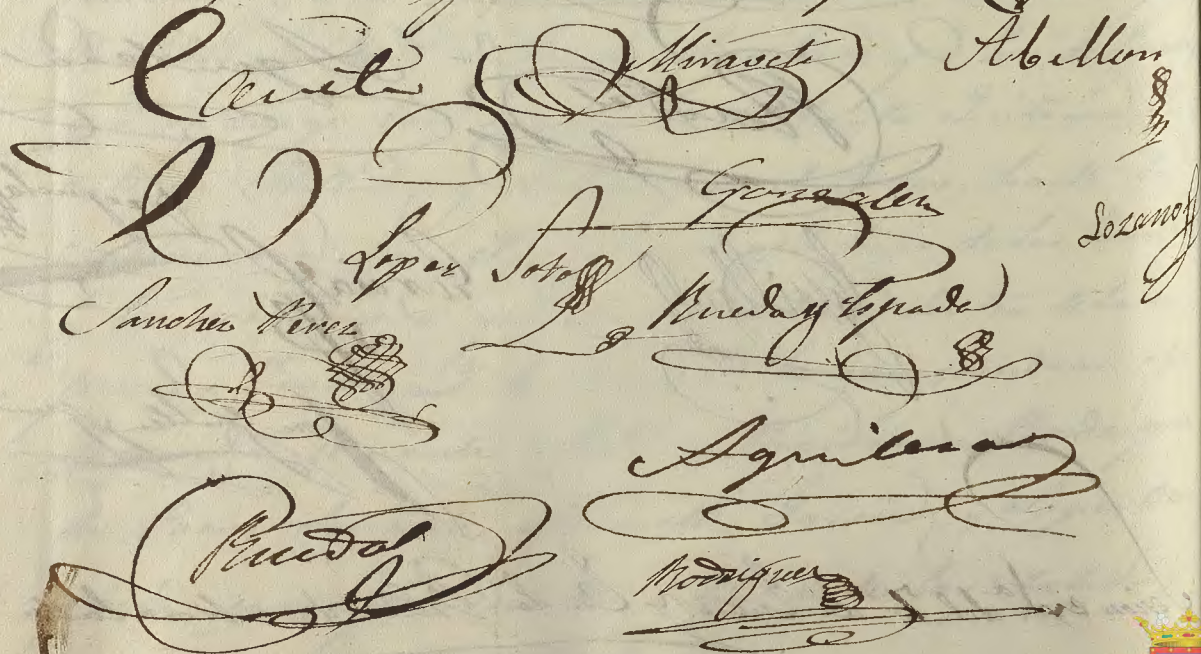 Miravete Abellon
Gonzalez
Lopez Soto Lozano
Sanchez Perez Rueda y Espada
Aguilera
Rueda
Rodriguez